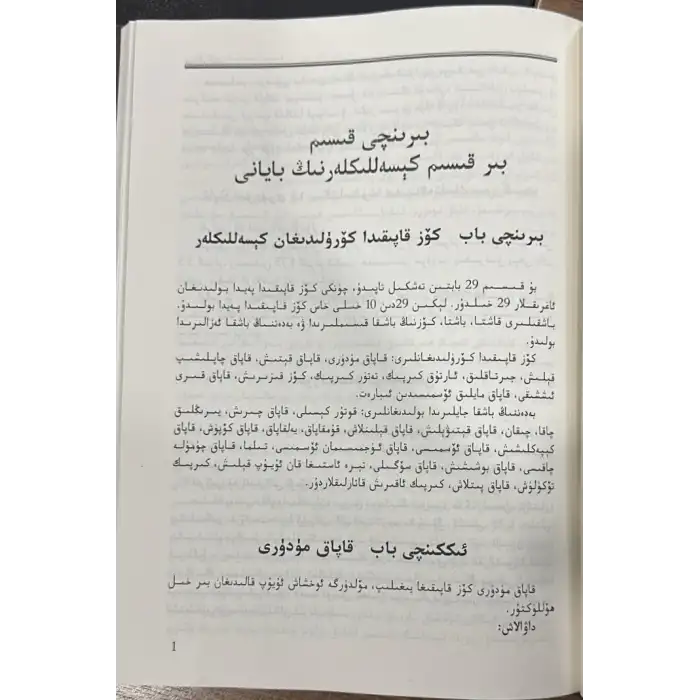 بىرىنچى قىسىم
بىر قىسىم كېسەللىكلەرنىڭ بايانى
بىرىنچى باب كۆز قاپىقىدا كۆرۈلىدىغان كېسەللىكلەر
بۇ قىسىم 29 بابتىن تەشكىل تاپىدۇ، چۈنكى كۆز قاپىقىدا پەيدا بولىدىغان
ئاغرىقلار 29 خىلدۇر. لېكىن 29دىن 10 خىلى خاس كۆز قاپىقىدا پەيدا بولىدۇ.
باشقىلىرى قاشتا، باشتا، كۆزنىڭ باشقا قىسىملىرىدا ۋە بەدەننىڭ باشقا ئەزالىرىدا
بولىدۇ.
كۆز قاپىقىدا كۆرۈلىدىغانلىرى: قاپاق مۆدۈرى، قاپاق قېتىش، قاپاق چاپلىشىپ
قېلىش، جىرتاقلىق، ئارتۇق كىرپىك، تەتۈر كىرپىك، كۆز قىزىرىش، قاپاق قىسرى
ئىششىقى، قاپاق مايلىق ئۆسمىسىدىن ئىبارەت.
بەدەننىڭ باشقا جايلىرىدا بولىدىغانلىرى: قوتۇر كېسىلى، قاپاق چىرىش، يىرىڭلىق
چاقا، چىقان، قاپاق قېتىۋېلىش، قاپاق قېلىنلاش، قۇمقاپاق، يەلقاپاق، قاپاق كۆيۈش، قاپاق
كېپەكلىشىش، قاپاق ئۆسمىسى، قاپاق ئۈجمىسىمان ئۆسمىسى، تىلما، قاپاق چۈمۈلە
چاقىسى، قاپاق بوشىشىش، قاپاق سۆگىلى، تېرە ئاستىغا قان ئۇيۇپ قېلىش، كىرپىك
تۆكۈلۈش، قاپاق پىتلاش، كىرپىك ئاقىرىش قاتارلىقلاردۇر.
ئىككىنچى باب قاپاق مۆدۈرى
قاپاق مۆدۈرى كۆز قاپىقىغا يىغىلىپ، مۆلدۈرگە ئوخشاش ئۇيۇپ قالىدىغان بىر خىل
ھۆللۈكتۇر.
داۋالاش:
1